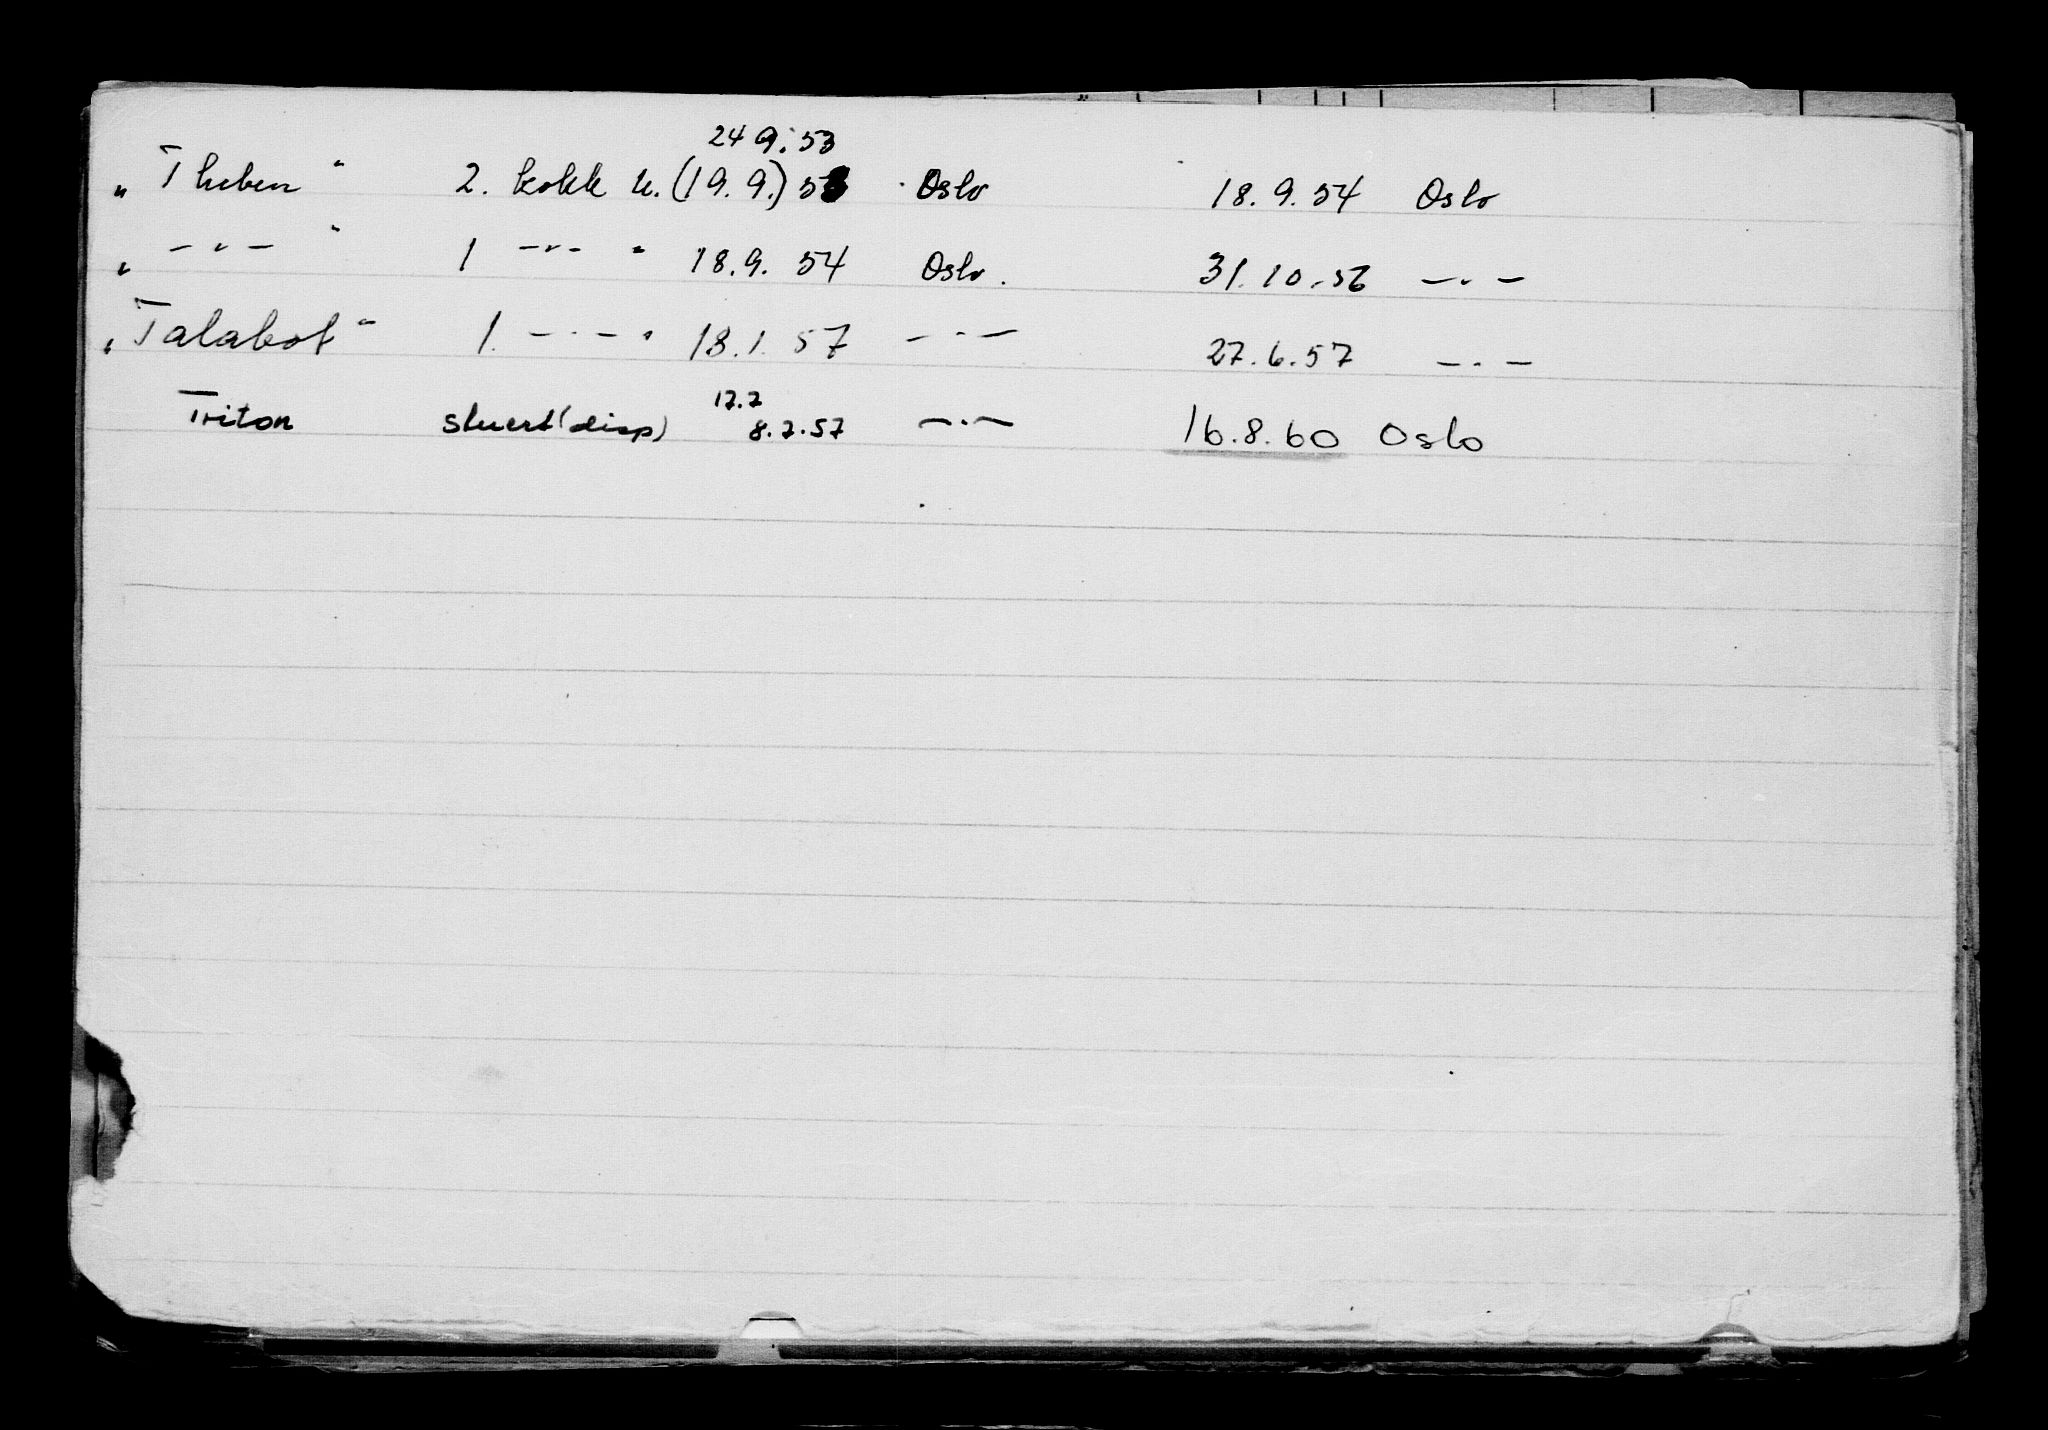 24 9.53
„ Theben " 2. kokk u. (19.9.) 53 Oslo 18.9.54 Oslo
„ — " — " 1 — " — " 18.9. 54 Oslo. 31.10.56 — . —
„ Talabot " 1. — . — " 18.1. 57 — . — 27.6.57 — . —
17.7
Triton stuert (disp) 8.7.57 — . — 16.8.60 Oslo